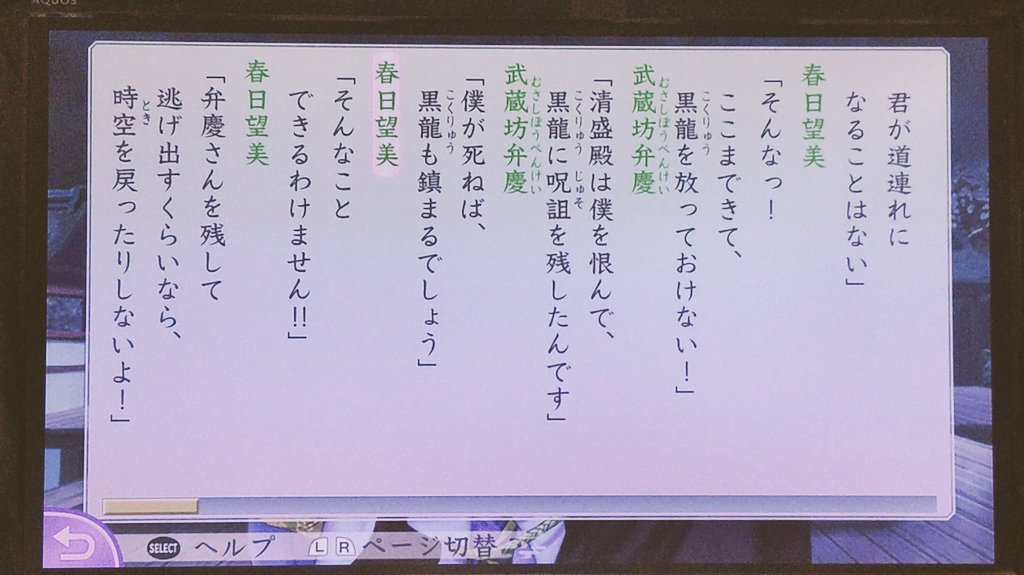 AQUOS
君が道連れに
なることはない」
春日望美
「そんなっ!
ここまできて、
黒龍を放っておけない!」
武蔵坊弁慶
「清盛殿は僕を恨んで、
黒龍に呪詛を残したんです」
武蔵坊弁慶
「僕が死ねば、
黒龍も鎮まるでしょう」
春日望美
「そんなこと
できるわけません!!」
春日望美
「弁慶さんを残して
逃げ出すくらいなら、
時空を戻ったりしないよ!」
こくりゅう
むさしぼうべんけい
こくりゅう じゅそ
むさしぼうべんけい
こくりゅう
とき
SELECT ヘルプ L R ページ切替